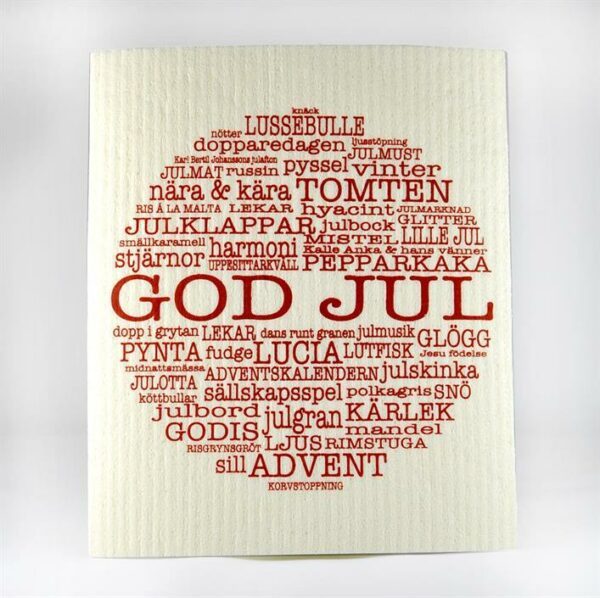 knäck
nötter LUSSEBULLE
dopparedagen ljusstöpning
Karl Bertil Johanssons julafton JULMUST
JULMAT russin pyssel vinter
nära & kära TOMTEN
RIS Á LA MALTA LEKAR hyacint JULMARKNAD
JULKLAPPAR julbock GLITTER
smällkaramell harmoni MISTEL LILLE JUL
stjärnor Kalle Anka & hans vänner
UPPESITTARKVÄLL PEPPARKAKA
GOD JUL
dopp i grytan LEKAR dans runt granen julmusik GLÖGG
PYNTA fudge LUCIA LUTFISK Jesu födelse
midnattsmässa ADVENTSKALENDERN julskinka
JULOTTA sällskapsspel polkagris SNÖ
köttbullar
julbord julgran KÄRLEK
GODIS mandel
RISGRYNSGRÖT LJUS RIMSTUGA
sill ADVENT
KORVSTOPPNING